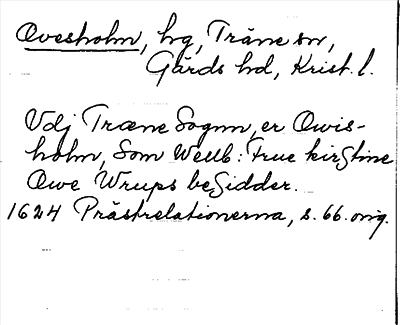 Ovesholm, hg, Träne sn,
Gärds hd, Krist. l.
Udj Træne Sognn, er Owis-
holm, Som Wellb: Frue kirStine
Owe Wrups beSidder.
1624 Prästrelationerna, s. 66. orig.